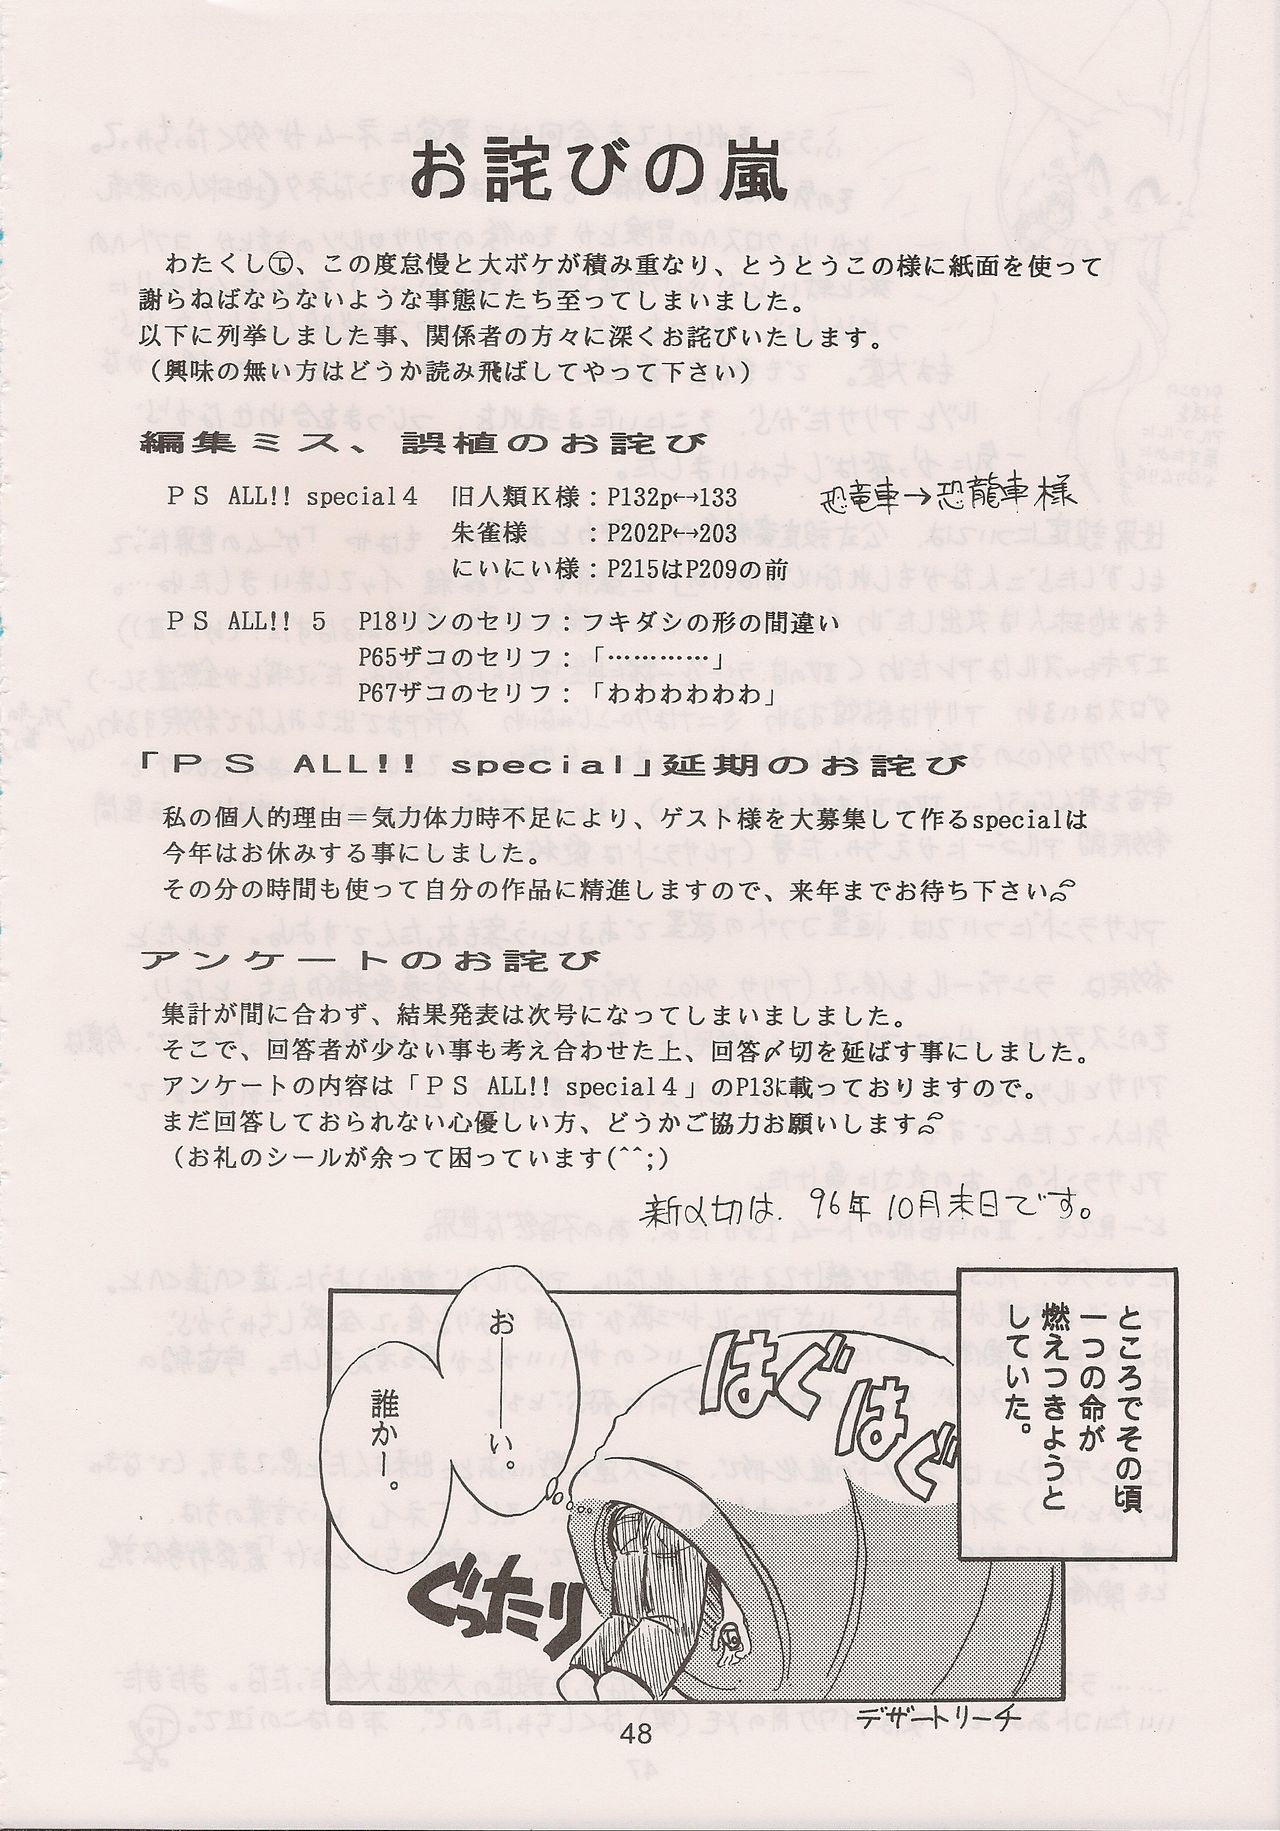 お詫びの嵐
わたくしⓉ、この度怠慢と大ボケが積み重なり、とうとうこの様に紙面を使って
謝らねばならないような事態にたち至ってしまいました。
以下に列挙しました事、関係者の方々に深くお詫びいたします。
（興味の無い方はどうか読み飛ばしてやって下さい）
編集ミス、誤植のお詫び
ＰＳ ALL!! special４　旧人類Ｋ様：P132p←→133　恐竜車→恐龍車様
朱雀様　　：P202P←→203
にいにい様：P215はP209の前
ＰＳ ALL!! ５　P18リンのセリフ：フキダシの形の間違い
P65ザコのセリフ：「…………」
P67ザコのセリフ：「わわわわわわ」
「ＰＳ ALL!! special」延期のお詫び
私の個人的理由＝気力体力時不足により、ゲスト様を大募集して作るspecialは
今年はお休みする事にしました。
その分の時間も使って自分の作品に精進しますので、来年までお待ち下さい
アンケートのお詫び
集計が間に合わず、結果発表は次号になってしまいましました。
そこで、回答者が少ない事も考え合わせた上、回答〆切を延ばす事にしました。
アンケートの内容は「ＰＳ ALL!! special４」のP13に載っておりますので。
まだ回答しておられない心優しい方、どうかご協力お願いします
（お礼のシールが余って困っています(^^;)
新〆切は、96年10月末日です。
ところでその頃
一つの命が
燃えつきようと
していた。
はぐはぐ
おーーい。
誰かー。
ぐったり
デザートリーチ
48